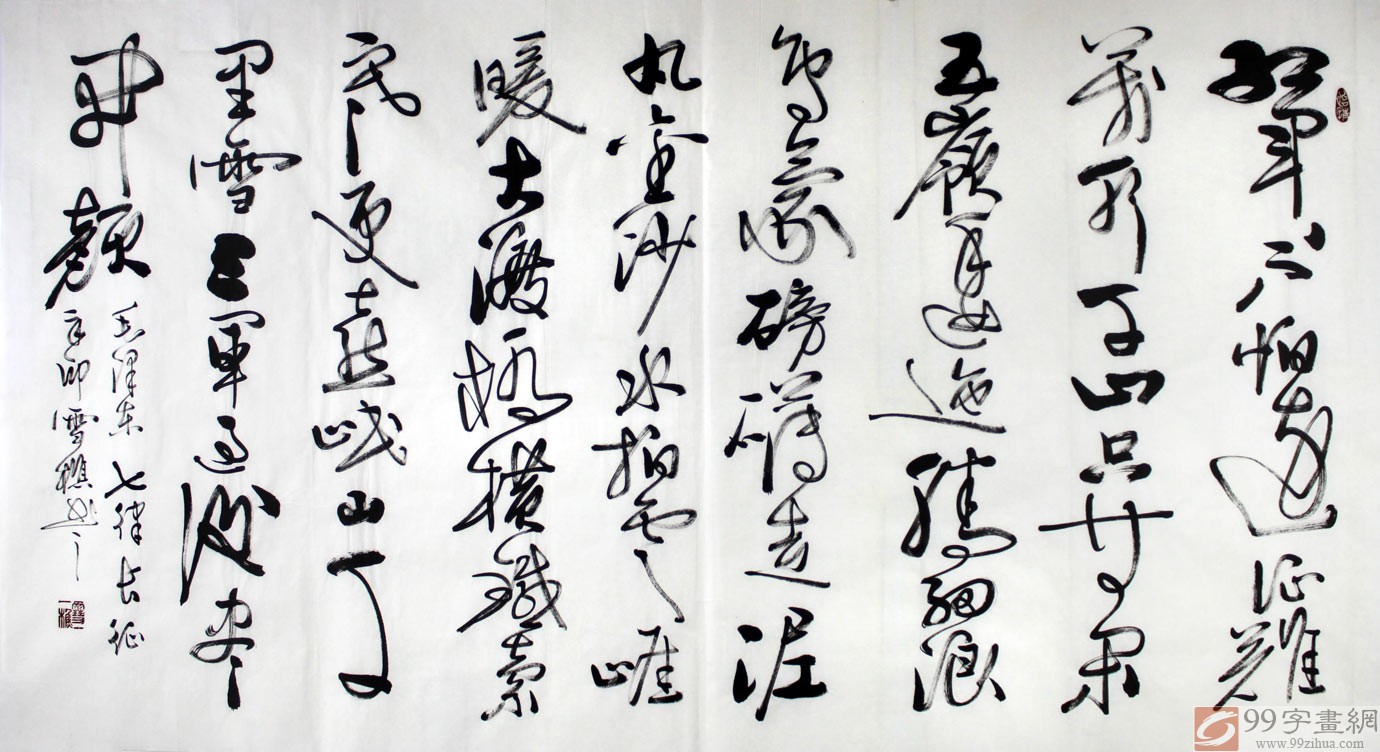 紅軍不怕遠征難
萬水千山只等閑
五嶺逶迤騰細浪
烏蒙磅礴走泥
丸金沙水拍雲崖
暖大渡橋橫鐵索
寒更喜岷山千
里雪三軍過後盡
開顏
毛澤東七律長征
辛卯雪樵書
99字畫網
www.99zihua.com